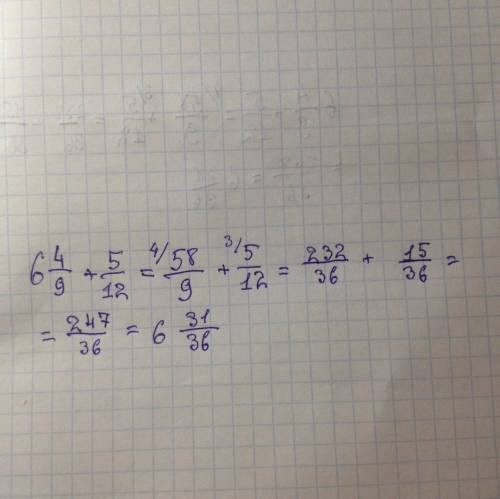 6 4/9 + 5/12 = 4/ 58/9 + 3/ 5/12 = 232/36 + 15/36 =
= 247/36 = 6 31/36